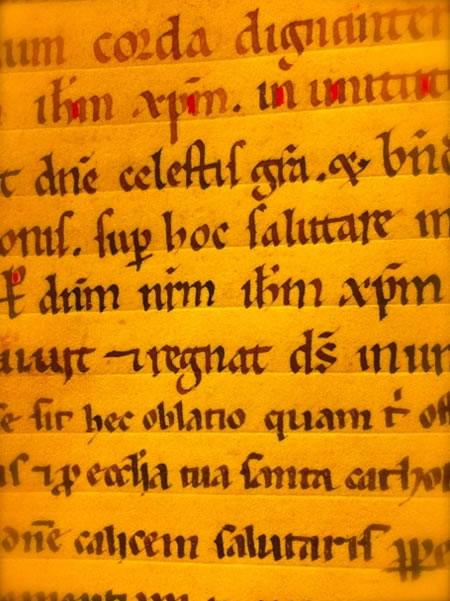 um corda dignanter
ihm xpm. in unitat
t dne celestis gra. & bnd
onis. sup hoc salutare in
dnm nrm ihm xpm
uiuit ⁊ regnat ds in un
se sit hec oblatio quam t off
is ⁊ p eccha tua sancta catho
dne calicem salutaris